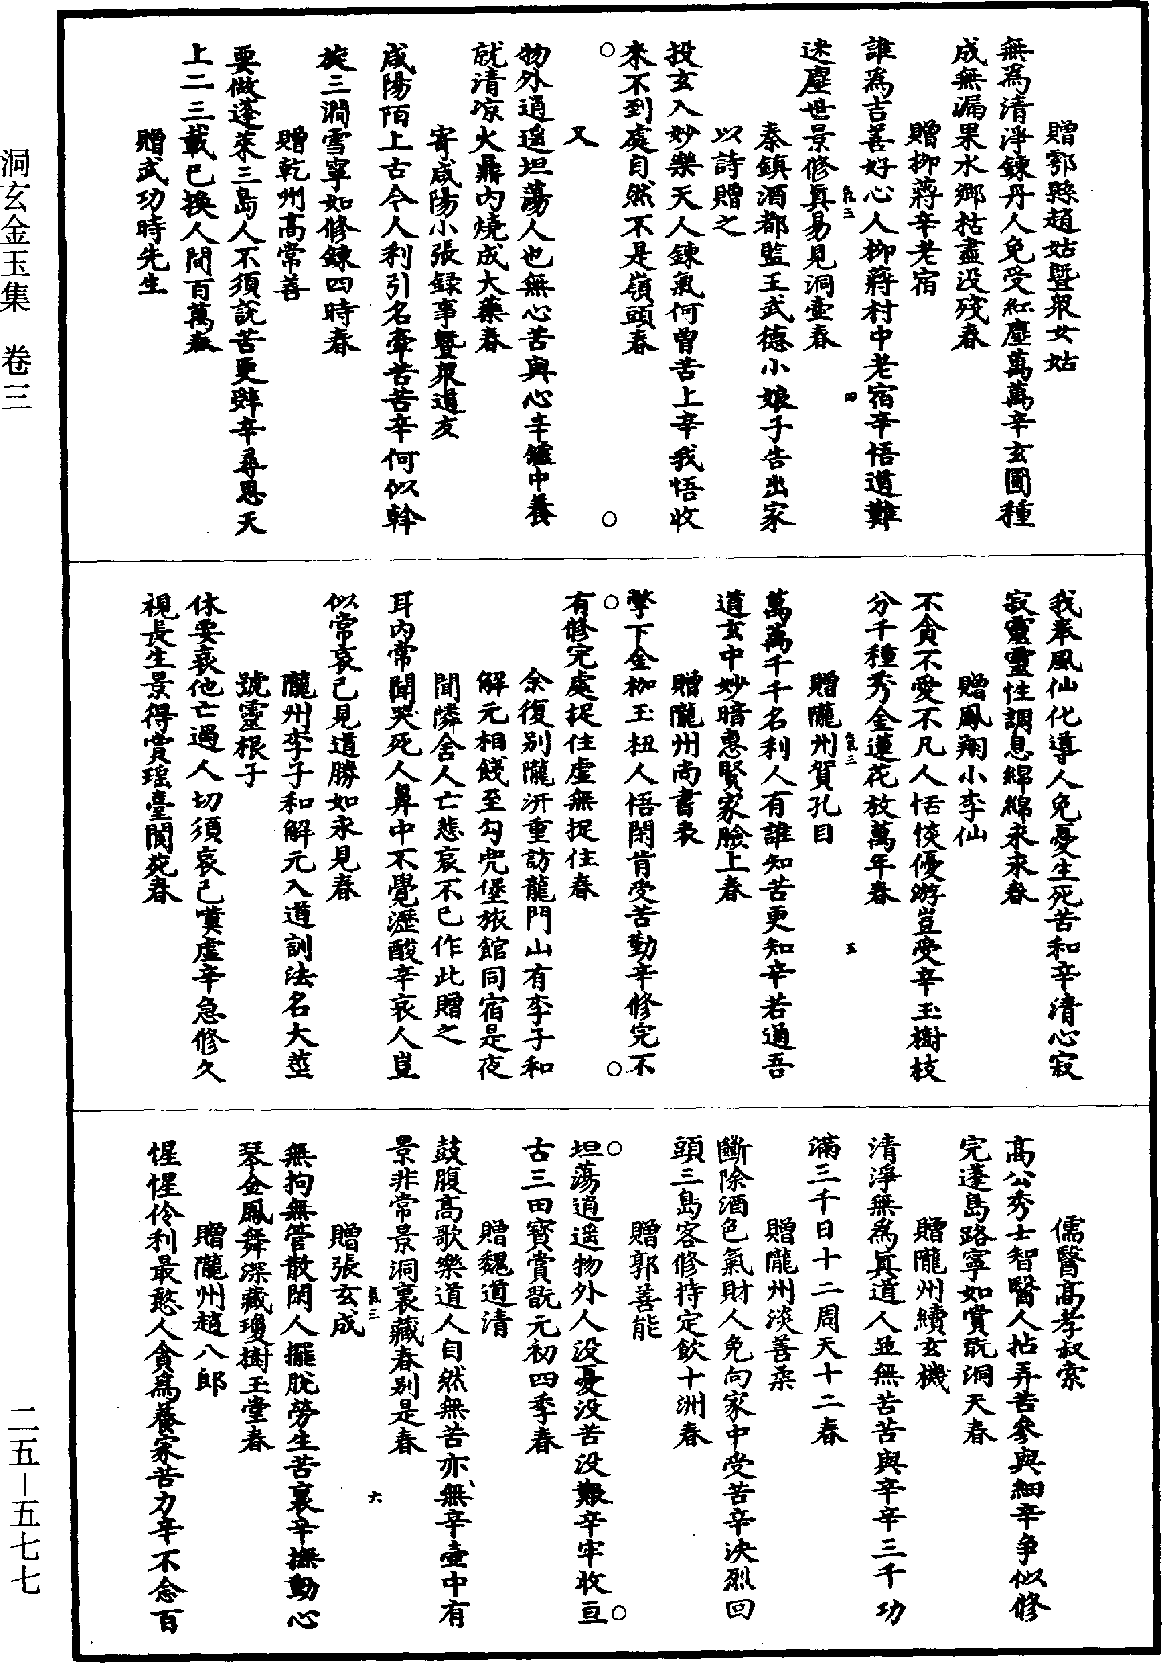 贈鄠縣趙姑暨衆女姑
無爲清淨鍊丹人免受紅塵萬萬辛玄圃種
成無漏果水鄉枯盡没殘春
贈柳蔣辛老宿
誰爲吉善好心人柳蔣村中老宿辛悟道難
迷塵世景修眞易見洞壺春
秦鎮酒都監王武德小娘子告出家
以詩贈之
投玄入妙樂天人鍊氣何曾苦上辛我悟收
來不到處自然不是嶺頭春
又
物外逍遥坦蕩人也無心苦與心辛鑪中養
就清凉火鼎内燒成大藥春
寄咸陽小張録事暨衆道友
咸陽陌上古今人利引名牽苦苦辛何似斡
旋三澗雪寧如修鍊四時春
贈乾州高常善
要做蓬萊三島人不須説苦更辭辛尋思天
上二三載已換人間百萬春
贈武功時先生
我奉風仙化導人免憂生死苦和辛清心寂
寂靈靈性調息綿綿永永春
贈鳳翔小李仙
不貪不愛不凡人恬惔優游豈受辛玉樹枝
分千種秀金蓮花放萬年春
贈隴州賀孔目
萬萬千千名利人有誰知苦更知辛若通吾
道玄中妙暗惠賢家臉上春
贈隴州尚書表
擎下金枷玉杻人悟閑肯受苦勤辛修完不
有修完處捉住虚無捉住春
余復别隴汧重訪龍門山有李子和
解元相餞至勾兜堡旅館同宿是夜
聞隣舍人亡悲哀不已作此贈之
耳内常聞哭死人鼻中不覺瀝酸辛哀人豈
似常哀己見道勝如永見春
隴州李子和解元入道訓法名大莖
號靈根子
休要哀他亡過人切須哀己嚔虚辛急修久
視長生景得賞瑶臺閬苑春
儒醫高孝叔索
高公秀士智醫人拈弄苦參與細辛爭似修
完蓬島路寧如賞翫洞天春
贈隴州續玄機
清淨無爲眞道人並無苦苦與辛辛三千功
滿三千日十二周天十二春
贈隴州淡善柔
斷除酒色氣財人免向家中受苦辛決烈回
頭三島客修持定飲十洲春
贈郭善能
坦蕩逍遥物外人没憂没苦没艱辛牢收亘
古三田寶賞翫元初四季春
贈魏道清
鼓腹高歌樂道人自然無苦亦無辛壺中有
景非常景洞裏藏春别是春
贈張玄成
無拘無管散閑人擺脱勞生苦裏辛撫動心
琴金鳳舞深藏瓊樹玉堂春
贈隴州趙八郎
惺惺伶利最憨人貪爲養家苦力辛不念百
洞玄金玉集　卷三
二五—五七七